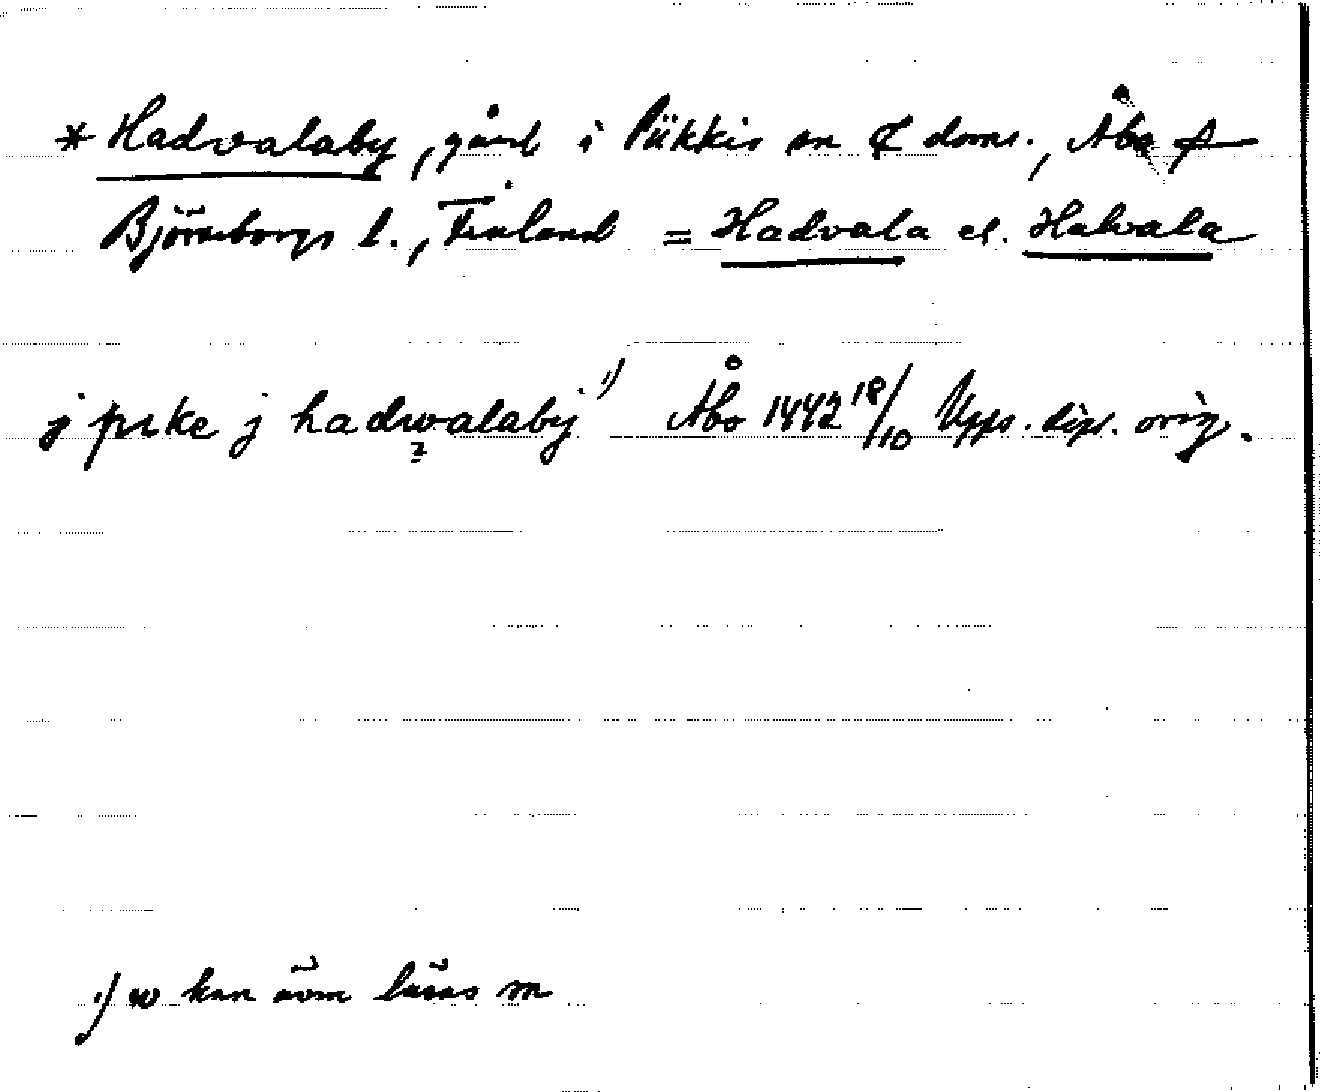 * Hadvalaby, gård i Piikkis sn & doms., Åbo &
Björneborgs l., Finland = Hadvala el. Halvala
j pike j hadwalaby 1) Åbo 1442 18/10 Upps. dipl. orig.
?
1) w kan även läsas m